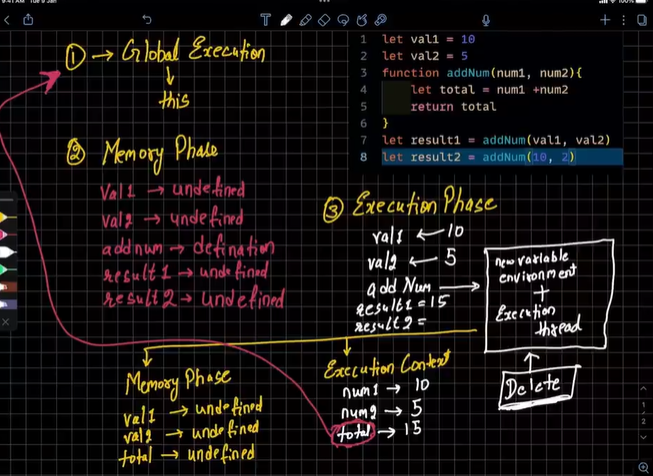 ① → Global Execution
↓
this
1 let val1 = 10
2 let val2 = 5
3 function addNum(num1, num2){
4 let total = num1 +num2
5 return total
6 }
7 let result1 = addNum(val1, val2)
8 let result2 = addNum(10, 2)
② Memory Phase
val1 → undefined
val2 → undefined
addnum → defination
result1 → undefined
result2 → undefined
③ Execution Phase
val1 ← 10
val2 ← 5
add Num →
result1 = 15
result2 =
new variable
environment
+
Execution
thread
Delete
Memory Phase
val1 → undefined
val2 → undefined
total → undefined
Execution Context
num1 → 10
num2 → 5
total → 15